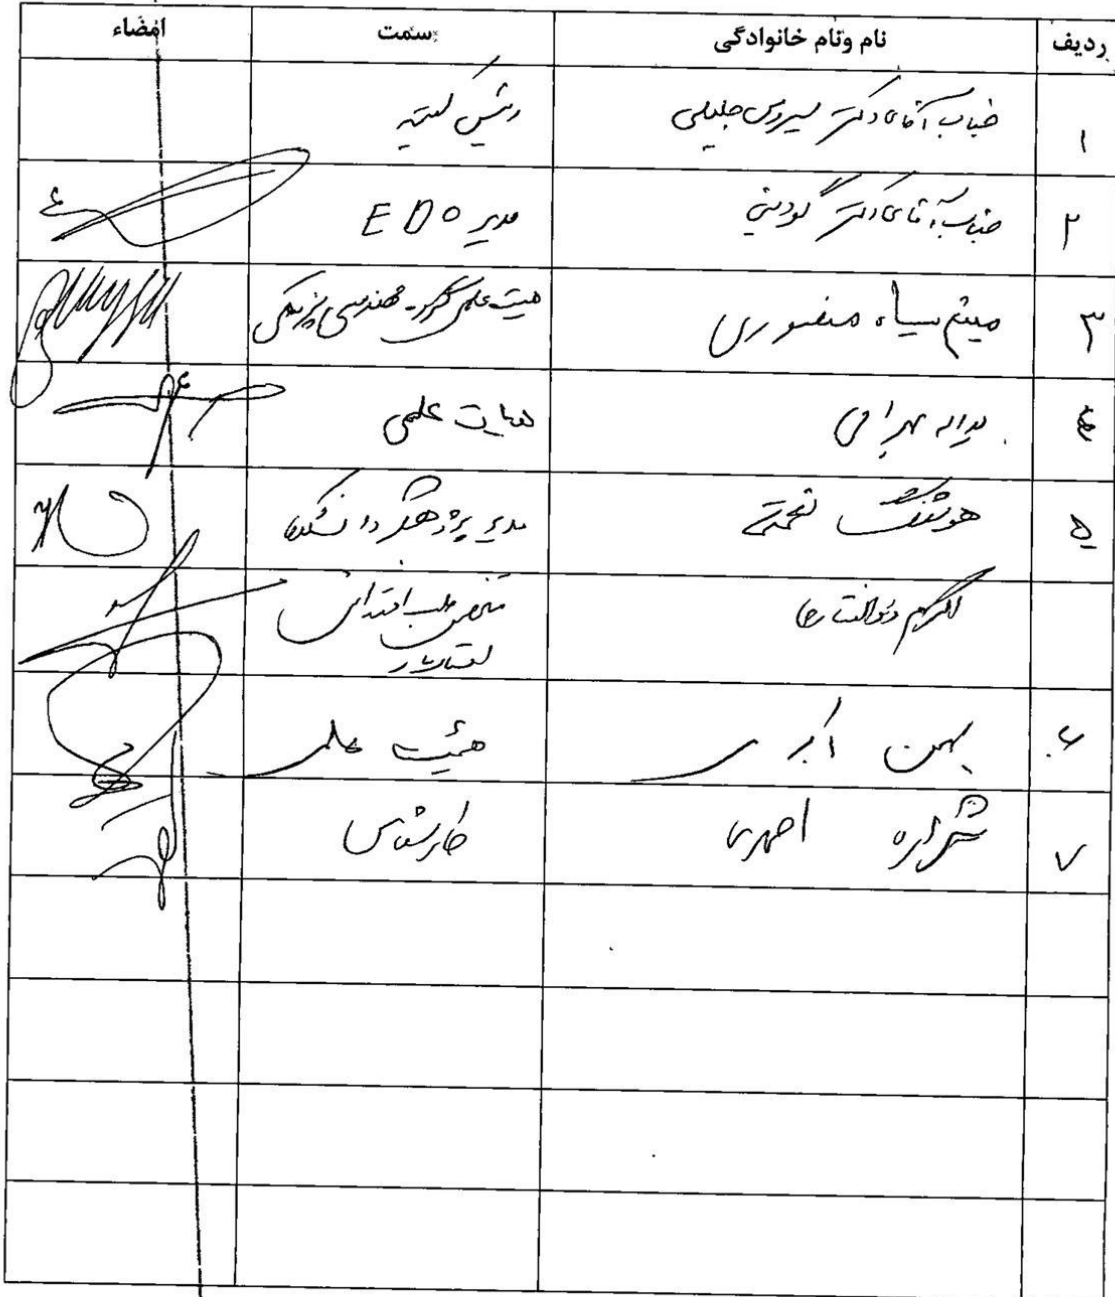 ردیف نام ونام خانوادگی سمت امضاء
۱ جناب آقای دکتر سیروس جلیلی رئیس کمیته
۲ جناب آقای دکتر گودینی مدیر EDO
۳ میثم سیاه منصوری هیئت علمی گروه مهندسی پزشکی
۴ بهرامی هیات علمی
۵ هوشنگ نعمتی مدیر پژوهشی دانشکده
اکرم ذوالفقاری متخصص طب
۶ بهمن اکبری هیئت علمی
۷ شراره احمدی کارشناس